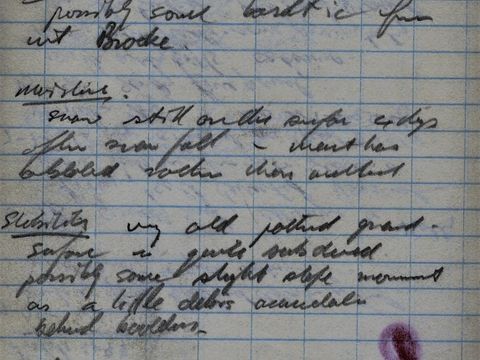 possibly some
unit Brocke.
Moisture.
snow still on the surface
after snow fall – most has
ablated rather than melted
Stability very old patterned ground.
Surface is quite subdued
possibly some slight slope movement
as a little debris accumulates
behind boulders.